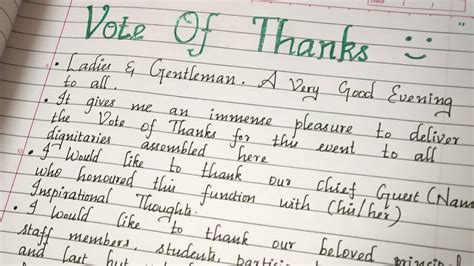 Vote Of Thanks :)
• Ladies & Gentleman. A Very Good Evening
to all.
• It gives me an immense pleasure to deliver
the Vote of Thanks for this event to all
dignitaries assembled here
• I Would like to thank our chief Guest (Name
who honoured this function with (his/her)
Inspirational Thoughts.
• I would like to thank our beloved principal
staff members, students,
and last but